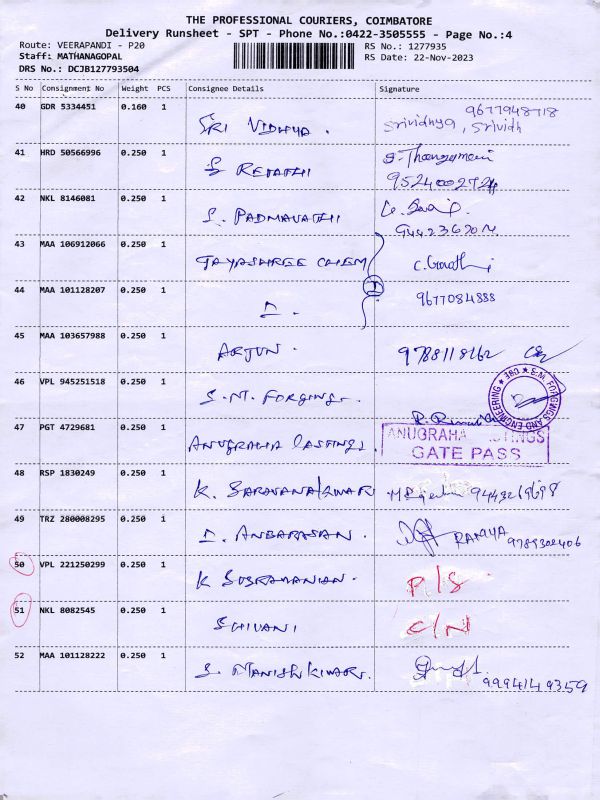 THE PROFESSIONAL COURIERS, COIMBATORE
Delivery Runsheet - SPT - Phone No.:0422-3505555 - Page No.:4
Route: VEERAPANDI - P20
RS No.: 1277935
Staff: MATHANAGOPAL
RS Date: 22-Nov-2023
DRS No.: DCJB127793504
S No Consignment No Weight PCS Consignee Details Signature
40 GDR 5334451 0.160 1 SRI VIDHYA. Srividhya, Srividh
41 HRD 50566996 0.250 1 S REVATHI
42 NKL 8146081 0.250 1 S. PADMAVATHI
43 MAA 106912066 0.250 1 JAYASHREE CHEM
44 MAA 101128207 0.250 1 9677084888
45 MAA 103657988 0.250 1 ARJUN. 9788118162
46 VPL 945251518 0.250 1 S.M. FORGINGS.
S.M. FORGINGS AND ENGINEERING CBE
47 PGT 4729681 0.250 1 ANUGRAHA CASTINGS.
ANUGRAHA CASTINGS
GATE PASS
48 RSP 1830249 0.250 1 K. SARAVANAKUMAR
49 TRZ 280008295 0.250 1 ANBARASAN. RAMYA
50 VPL 221250299 0.250 1 K SUBRAMANIAN. P/S
51 NKL 8082545 0.250 1 SHIVANI C/N
52 MAA 101128222 0.250 1 S. MANISH KUMAR.
9994149359